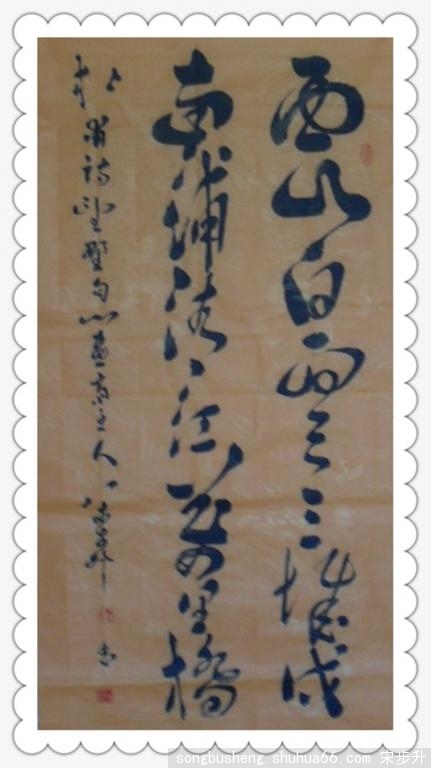 西山白雪三城戍
南浦清江萬里橋
杜甫詩望野句 主人 步升 書
songbusheng.shuhua66.com 宋步升